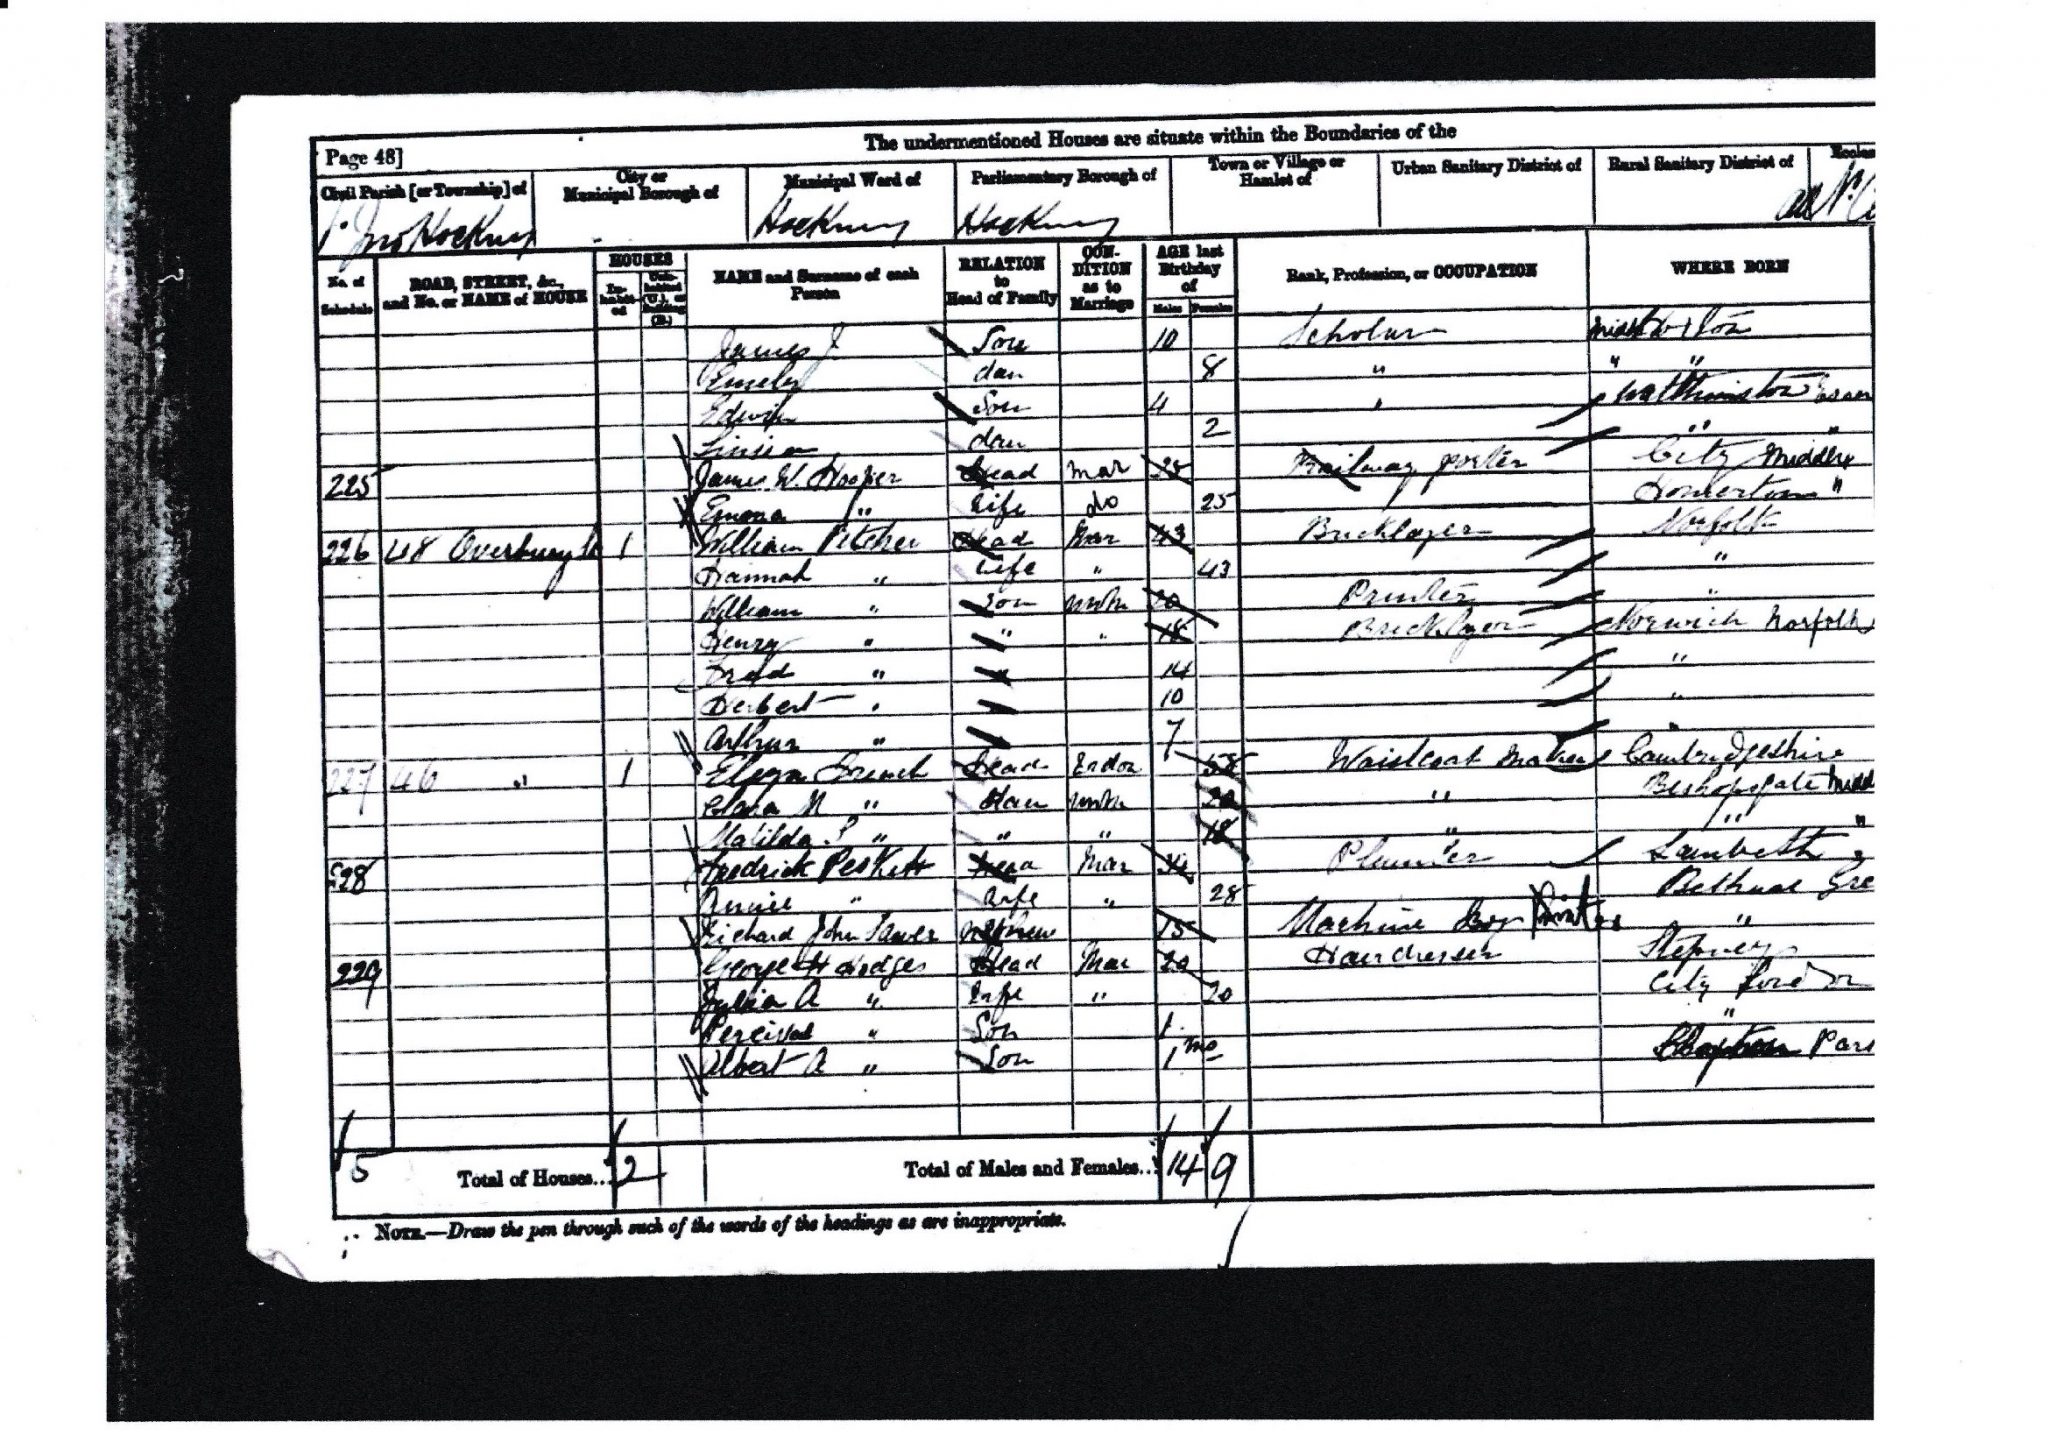 The undermentioned Houses are situate within the Boundaries of the
Page 48]
Civil Parish [or Township] of City or Municipal Borough of Municipal Ward of Parliamentary Borough of Town or Village or Hamlet of Urban Sanitary District of Rural Sanitary District of
Jno Hackney Hackney Hackney
No. of Schedule ROAD, STREET, &c., and No. or NAME of HOUSE HOUSES Inhabited Uninhabited (U.), or Building (B.) NAME and Surname of each Person RELATION to Head of Family CONDITION as to Marriage AGE last Birthday of Males Females Rank, Profession, or OCCUPATION WHERE BORN
James J Son 10 Scholar
dau 8 " " "
Edwin Son 4 " Walthamston Essex
dau 2 " "
225 James W. Hooper Head Mar 28 Railway porter City Middlx
Emma " Wife do 25 Homerton "
226 48 Overbury 1 William Pitcher Head Mar 43 Bricklayer Norfolk
Hannah " Wife " 43 "
William " Son unm 20 Printer "
Henry " " " 18 Bricklayer Norwich Norfolk
Fred " " 14 "
Herbert " " 10 "
Arthur " " 7 "
227 46 " 1 French Head 58 Waistcoat Maker Cambridgeshire
Clara M " dau unm 20 " Bishopsgate Midd
Matilda " " " 18 " " "
228 Fredrick Peskett Head Mar 34 Plumber Lambeth
Annie " Wife " 28 Bethnal Gre
Richard John Nephew 15 Machine Boy Printer "
229 George H Hodges Head Mar 20 Hairdresser Stepney
Julia A " Wife " 20 City London
Percival " Son 1 "
Albert A " Son 1 mo Clapton Par
5 Total of Houses... 2 Total of Males and Females... 14 9
NOTE.—Draw the pen through such of the words of the headings as are inappropriate.